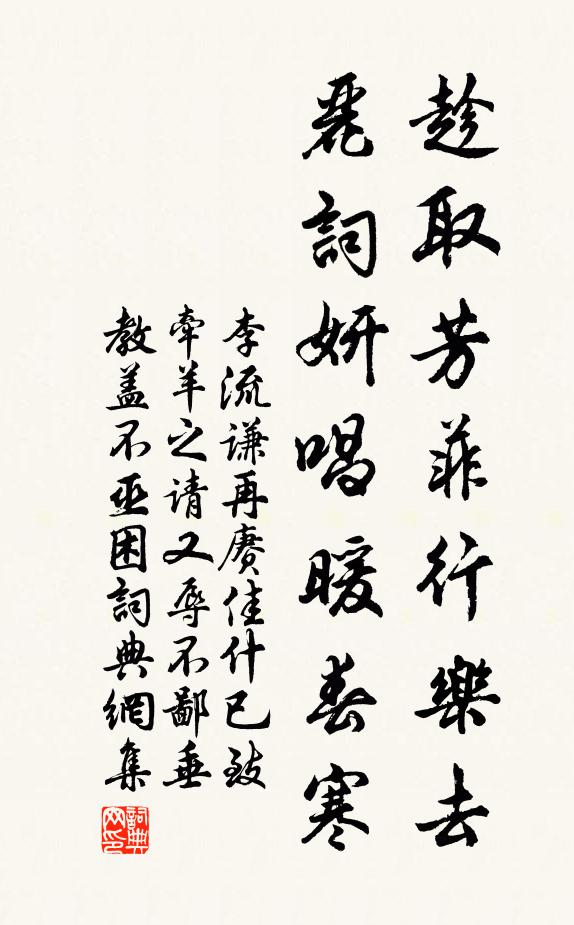 趁取芳菲行樂去
麗詞妍唱暖春寒
李流謙再賡佳什已致
牽羊之請又辱不鄙垂
教盖不亟困詞典網集
詞典网印